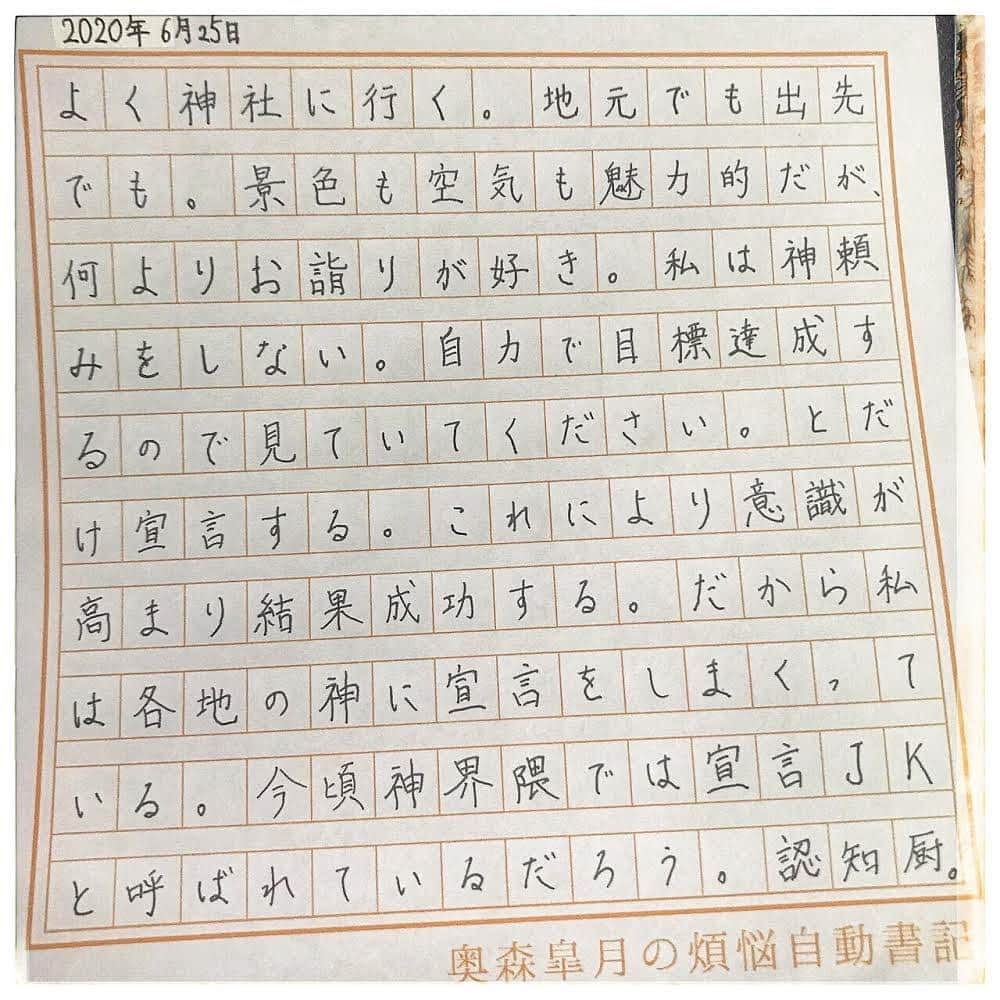 2020年6月25日
よく神社に行く。地元でも出先
でも。景色も空気も魅力的だが、
何よりお詣りが好き。私は神頼
みをしない。自力で目標達成す
るので見ていてください。とだ
け宣言する。これにより意識が
高まり結果成功する。だから私
は各地の神に宣言をしまくって
いる。今頃神界隈では宣言JK
と呼ばれているだろう。認知厨。
奥森皐月の煩悩自動書記